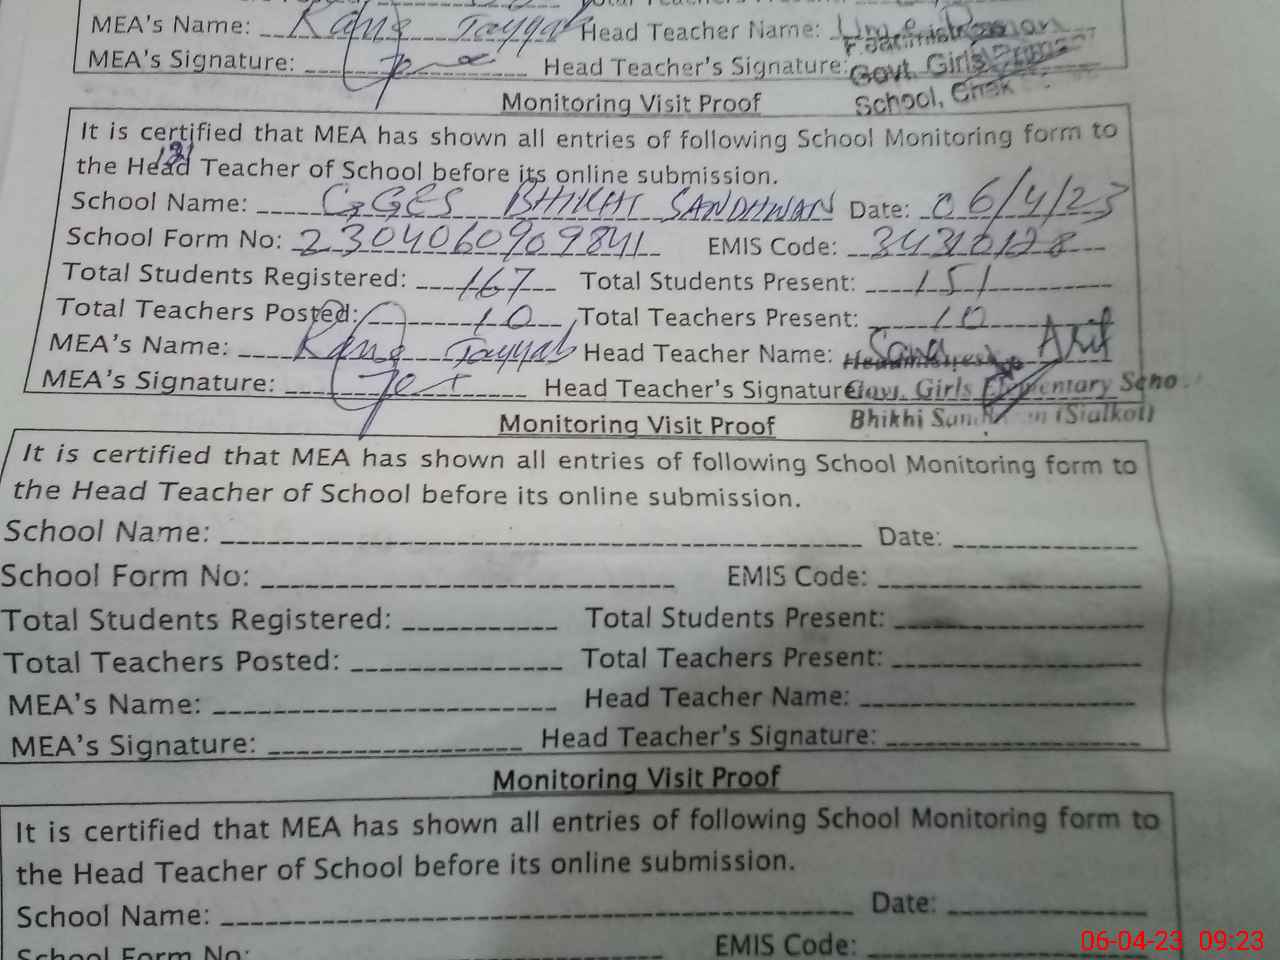 MEA's Name: Rana Tayyab Head Teacher Name:
MEA's Signature: Head Teacher's Signature: Govt. Girls
School, Chak
Monitoring Visit Proof
It is certified that MEA has shown all entries of following School Monitoring form to
the Head Teacher of School before its online submission.
School Name: GGES BHIKHI SANDHWAN Date: 06/4/23
School Form No: 2304060909841 EMIS Code: 34310128
Total Students Registered: 167 Total Students Present: 151
Total Teachers Posted: 10 Total Teachers Present: 10
MEA's Name: Rana Tayyab Head Teacher Name: Sana Arif
MEA's Signature: Head Teacher's Signature Govt. Girls Elementary Scho
Bhikhi Sandhwan (Sialkot)
Monitoring Visit Proof
It is certified that MEA has shown all entries of following School Monitoring form to
the Head Teacher of School before its online submission.
School Name: Date:
School Form No: EMIS Code:
Total Students Registered: Total Students Present:
Total Teachers Posted: Total Teachers Present:
MEA's Name: Head Teacher Name:
MEA's Signature: Head Teacher's Signature:
Monitoring Visit Proof
It is certified that MEA has shown all entries of following School Monitoring form to
the Head Teacher of School before its online submission.
School Name: Date:
School Form No: EMIS Code:
06-04-23 09:23